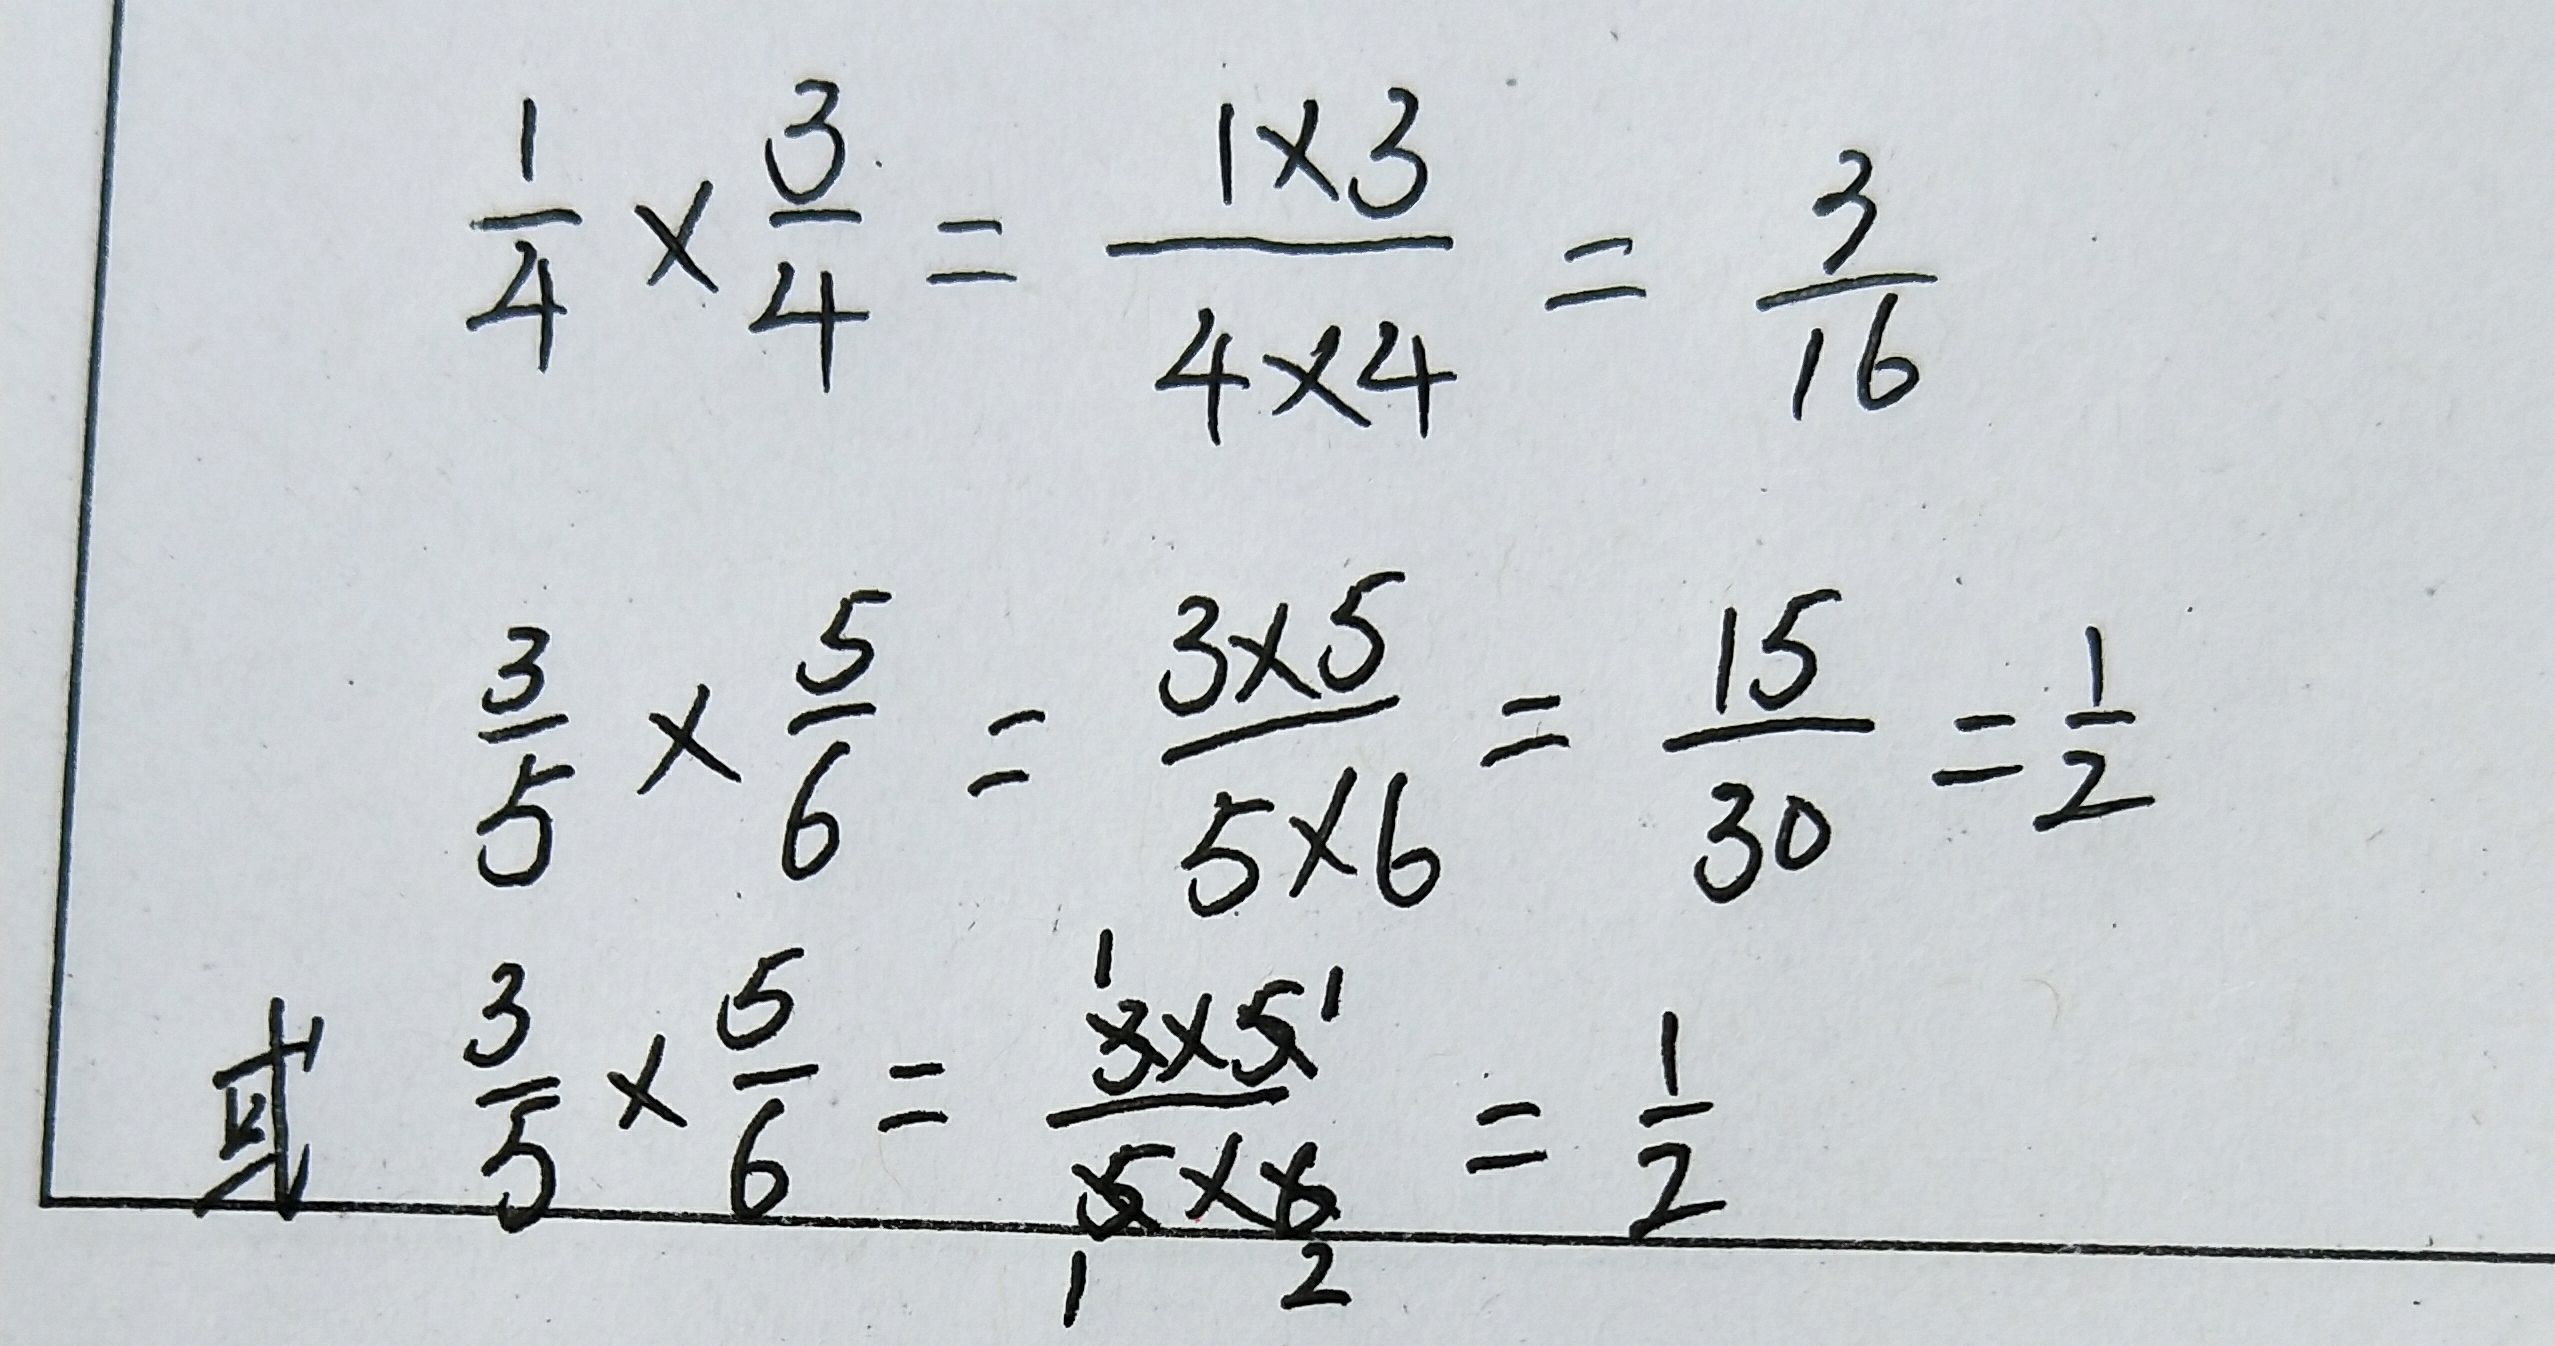 1/4 × 3/4 = (1×3)/(4×4) = 3/16
3/5 × 5/6 = (3×5)/(5×6) = 15/30 = 1/2
1 1
或 3/5 × 5/6 = (3×5)/(5×6) = 1/2
1 2